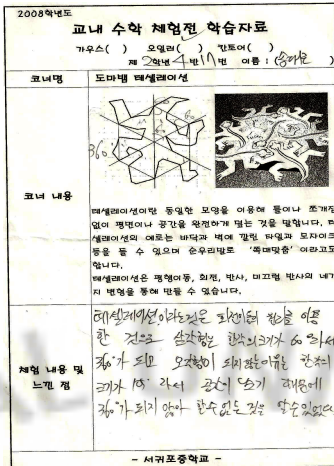 2008학년도
교내 수학 체험전 학습자료
가우스( ) 오일러( ) 칸토어( )
제 2학년 4반 17번 이름 : ( )
코너명
도마뱀 테셀레이션
360
코너 내용
테셀레이션이란 동일한 모양을 이용해 틈이나 쪼개짐
없이 평면이나 공간을 완전하게 덮는 것을 말합니다. 테
셀레이션의 예로는 바닥과 벽에 깔린 타일과 모자이크
등을 들 수 있으며 순우리말로 '쪽매맞춤' 이라고도
합니다.
테셀레이션은 평행이동, 회전, 반사, 미끄럼 반사의 네가
지 변형을 통해 만들 수 있습니다.
체험 내용 및
느낀 점
테셀레이션이라는것은 회전이동의 원리를 이용
한 것으로 삼각형은 한각의크기가 60°라서
360°가 되고 오각형이 되지않는이유는 한각의
크기가 108°라서 공간이 남기 때문에
360°가 되지 않아 할수없는 것을 알수있었다.
- 서귀포중학교 -